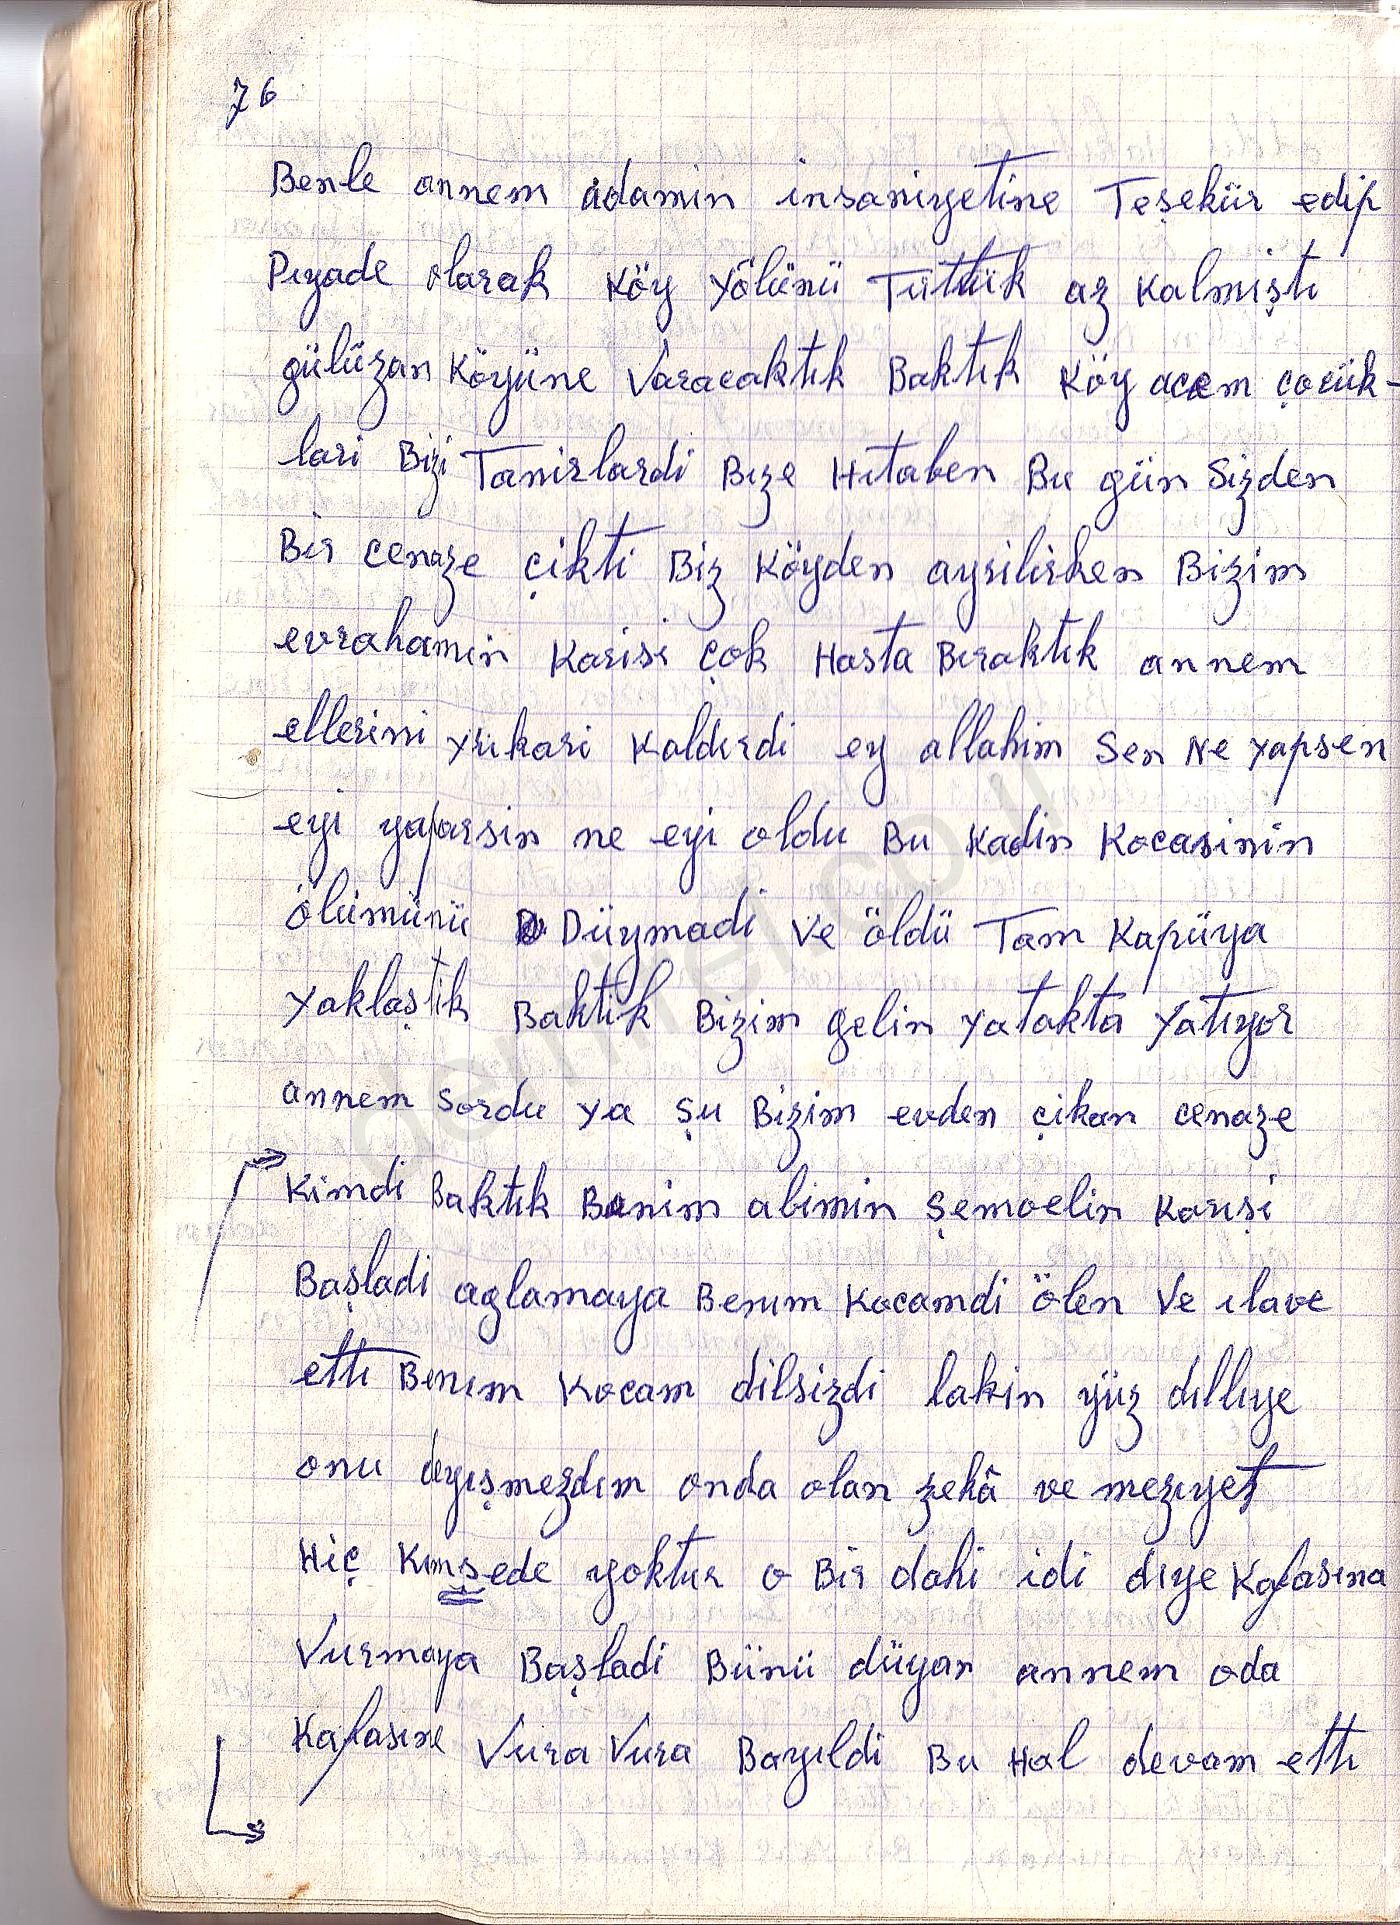 76
Benle annem adamin insaniyetine Teşekür edip
Pıyade olarak Köy Yölünü Tüttük az Kalmiştı
gülüzan Köyüne Varacaktık Baktık Köy acem çocük-
lari Bizi Tanirlardi Bıze Hıtaben Bu gün Sizden
Bir cenaze çikti Biz Köyden ayrilirken Bizim
evrahamın Karisi çok Hasta Bıraktık annem
ellerini yukari Kaldırdi ey allahim Sen Ne yapsen
eyi yaparsin ne eyi oldu Bu Kadin Kocasinin
ölümünü Düymadi Ve öldü Tam Kapüya
Yaklaştik Baktik Bizim gelin yatakta Yatıyor
annem Sordu Ya Şu Bizim evden çikan cenaze
Kimdi Baktık Benim abimin Şemoelin Karışi
Başladi aglamaya Benım Kocamdi Ölen Ve ılave
ettı Benım Kocam dilsizdi lakin yüz dıllıye
onu deyışmezdım onda olan zekâ ve mezıyet
Hiç Kımsede yoktur o Bir dahi idi dıye Kafasına
Vurmaya Başladi Bünü düyan annem oda
Kafasıne Vura Vura Bayıldi Bu Hal devam ettı